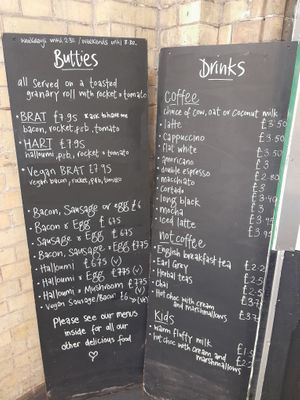 weekdays until 2:30 / weekends until 3:00
Butties
all served on a toasted
granary roll with rocket + tomato
• BRAT £7.95
bacon, rocket, pcb, tomato
• HART £7.95
halloumi, pcb, rocket + tomato
• Vegan BRAT £7.95
vegan bacon, rocket, pcb, tomato
• Bacon, Sausage or egg £6
• Bacon + Egg £6.75
• Sausage + Egg £6.75
• Bacon, Sausage, Egg £7.75
• Halloumi £6.75 (v)
• Halloumi + Egg £7.75 (v)
• Halloumi + Mushroom £7.75 (v)
• Vegan Sausage/Bacon £6
Please see our menus
inside for all our
other delicious food
Drinks
Coffee
choice of cow, oat or coconut milk
• latte £3.50
• cappuccino £3.50
• flat white £3.50
• americano £3
• double espresso £2.80
• macchiato
• cortado £3
• long black £3.40
• mocha
• iced latte £3.95
not coffee
• English breakfast tea
• Earl Grey
• Herbal teas
• Chai
• Hot choc with cream
and marshmallows
Kids
• warm fluffy milk
• hot choc with cream and
marshmallows